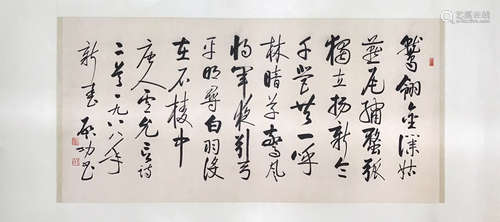 鹫翎金濮姑
燕尾绣蝥弧
独立扬新令
千营共一呼
林暗草惊风
将军夜引弓
平明寻白羽没
在石棱中
唐人卢允言诗
二首一九八八年
新春 启功书